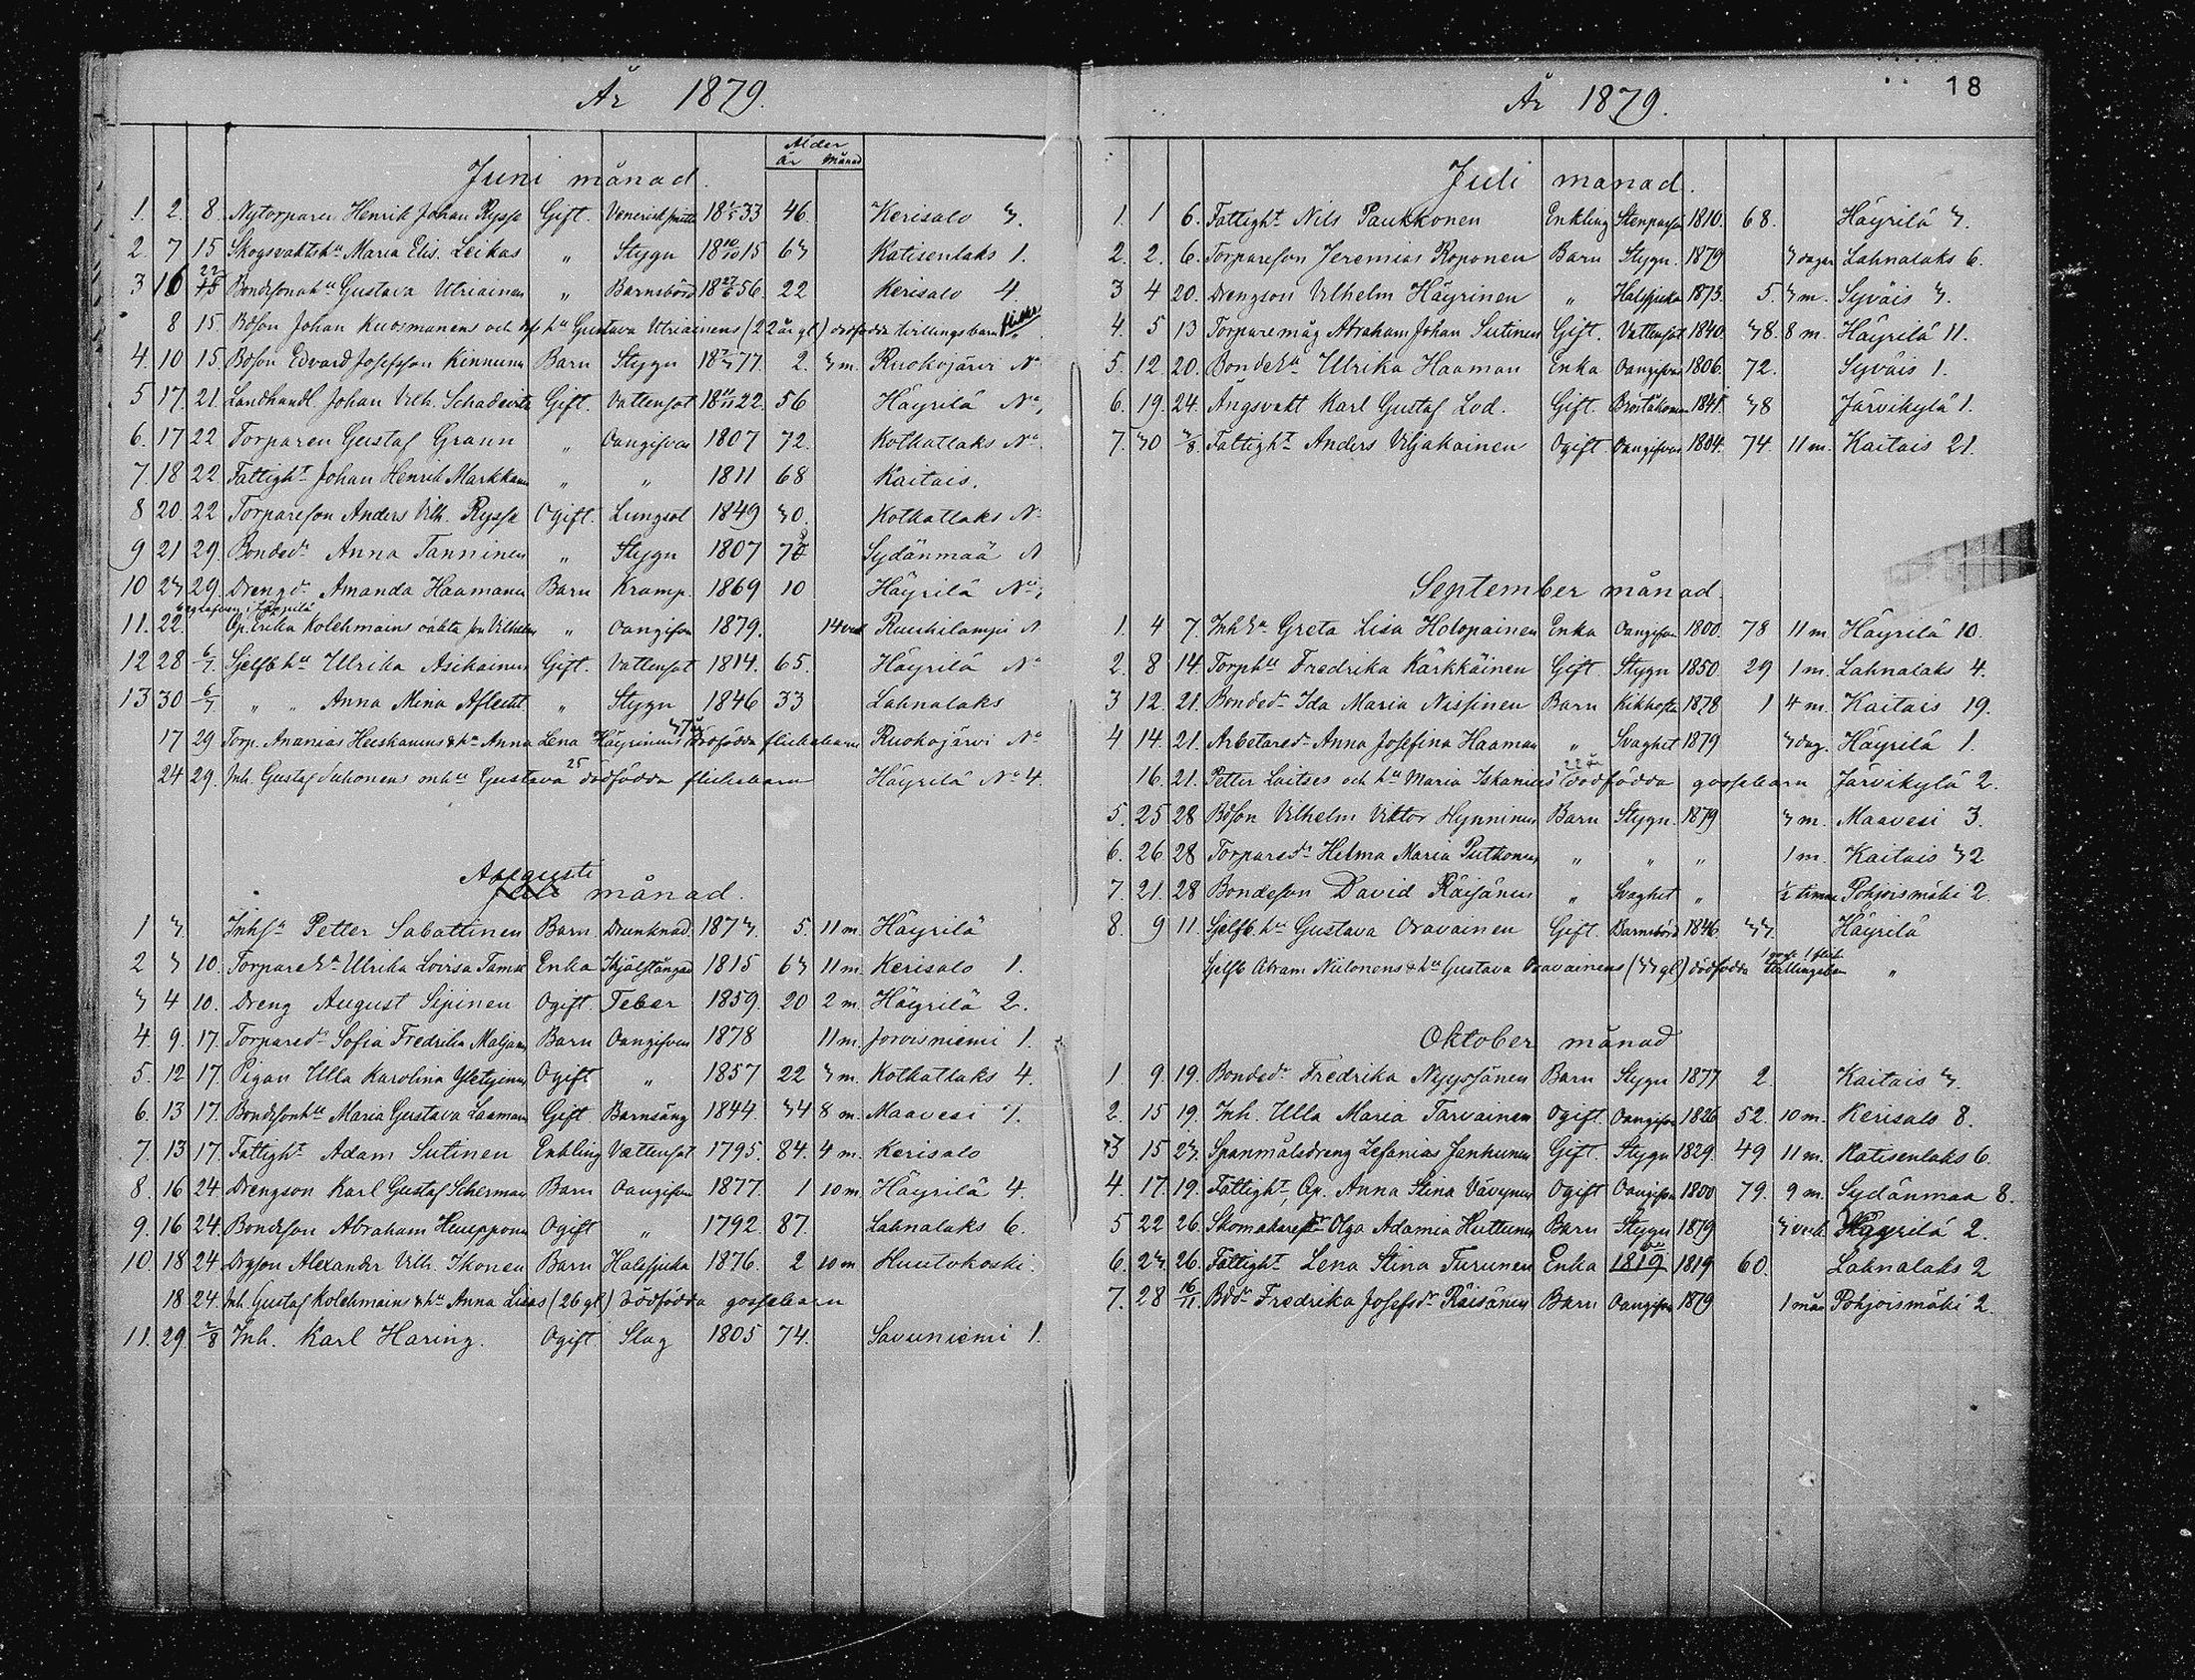 År 1879.
Ålder
år Månad
Juni månad.
1. 2. 8. Nytorparen Henrik Johan Ryssä Gift. Venerisk 18 33 46. Kerisalo 3.
2. 7 15 Skogsvaktshu Maria Elis. Leikas " Stygn 18 10/10 15 63 Katisenlaks 1.
3 16 22/15 Bondesonahu Gustava Utriainen " Barnsbörd 18 27/6 56. 22 Kerisalo 4.
8 15. Bdson Johan Kuosmanens och hu Gustava Utriainens (22 år gl.) dödfödda tvillingsbarn
4. 10 15. Bdson Edvard Josefsson Kinnunen Barn Stygn 18 77. 2. 3 m. Ruokojärvi No
5 17. 21. Landhandl. Johan Vilh. Schadevitz Gift. Vattensot 18 22. 56 Häyrilä No
6. 17 22 Torparen Gustaf Grann " Oangifven 1807 72. Kotkatlaks No
7. 18 22 Fattight Johan Henrik Markkanen " " 1811 68 Kaitais.
8 20. 22 Torpareson Anders Vilh. Ryssä Ogift. Lungsot 1849 30. Kotkatlaks N
9 21 29. Bondedr Anna Tanninen " Stygn 1807 72 Sydänmaa N
10 23 29. Drengdr Amanda Haamanen Barn Kramp. 1869 10 Häyrilä No
begrafven i Häyrilä
11. 22. Op. Erika Kolehmains oäkta son Vilhelm " Oangifven 1879. 14 veck Ruuhilampi N
12 28 6/7 Sjelfb hu Ulrika Asikainen Gift. Vattensot 1814. 65. Häyrilä No
13 30 6/7 " " Anna Mina Aflecht " Stygn 1846 33 Lahnalaks
17 29 Torp. Ananias Heiskanens & hu Anna Lena Häyrinens 37 år dödfödda flickebarn Ruokojärvi No
24 29. Inh. Gustaf Juhonens o hu Gustava 25 dödfödda flickebarn Häyrilä No 4.
Augusti
Juli månad.
1 3. Inhsn Petter Sabattinen Barn Drunknad. 1873. 5. 11 m. Häyrilä
2 3 10. Torpareea Ulrika Lovisa Tamsi Enka Ihjälstångad 1815 63 11 m. Kerisalo 1.
3 4 10. Dreng August Sipinen Ogift. Feber 1859. 20 2 m. Häyrilä 2.
4. 9. 17. Torparedr Sofia Fredrika Maljanen Barn Oangifven 1878 11 m. Joroisniemi 1.
5. 12 17. Pigan Ulla Karolina Yletyinen Ogift " 1857 22 3 m. Kotkatlaks 4.
6. 13 17. Bondesonhu Maria Gustava Laamanen Gift. Barnsäng 1844. 34 8 m. Maavesi 7.
7. 13 17. Fattight Adam Sutinen Enkling Vattensot 1795. 84. 4 m. Kerisalo
8. 16 24. Drengson Karl Gustaf Scherman Barn Oangifven 1877. 1 10 m. Häyrilä 4.
9. 16 24. Bondeson Abraham Heupponen Ogift " 1792. 87. Lahnalaks 6.
10. 18 24. Drgson Alexander Vilh. Ikonen Barn Halssjuka 1876. 2 10 m Huutokoski.
18 24. Inh. Gustaf Kolehmains & hu Anna Lisas (26 gl.) dödfödda gossebarn
11. 29. 2/8 Inh. Karl Haring. Ogift Slag 1805 74. Savuniemi 1.
År 1879.
18
Juli månad.
1. 1 6. Fattight Nils Paukkonen Enkling Stenpassion 1810. 68. Häyrilä 3.
2. 2. 6. Torpareson Jeremias Roponen Barn Stygn. 1879 3 dagar Lahnalaks 6.
3 4 20. Drengson Vilhelm Häyrinen " Halssjuka 1873. 5. 3 m. Syväis 3.
4. 5 13 Torparemåg Abraham Johan Sutinen Gift. Vattensot 1840. 38. 8 m. Häyrilä 11.
5. 12. 20. Bondeea Ulrika Haaman Enka Oangifven 1806. 72. Syväis 1.
6. 19. 24. Ängsvakt Karl Gustaf Lod. Gift. Bröståkomma 1841. 38 Järvikylä 1.
7. 30 3/8. Fattight Anders Viljakainen Ogift. Oangifven 1804. 74. 11 m. Kaitais 21.
September månad.
1. 4 7. Inhea Greta Lisa Holopainen Enka Oangifven 1800. 78 11 m. Häyrilä 10.
2. 8 14. Torphu Fredrika Kärkkäinen Gift. Stygn 1850. 29 1 m. Lahnalaks 4.
3 12. 21. Bondedr Ida Maria Nissinen Barn Kikhosta 1878 1 4 m. Kaitais 19.
4 14. 21. Arbetaredr Anna Josefina Haaman " Svaghet 1879 3 dag. Häyrilä 1.
16. 21. Petter Laitses och hu Maria Iskanius 22 år dödfödda gossebarn Järvikylä 2.
5. 25 28 Bdson Vilhelm Viktor Hynninen Barn Stygn. 1879 3 m. Maavesi 3.
6. 26. 28 Torparedr Helma Maria Putkonen " " " 1 m. Kaitais 32
7. 21. 28 Bondeson David Räisänen " Svaghet " 1/2 timme Pohjoismäki 2.
8. 9 11. Sjelfb. hu Gustava Oravainen Gift. Barnsbörd 1846. 33. Häyrilä
Sjelfb Abram Niilonens & hu Gustava Oravainens (33 gl.) dödfödda 1 goss. 1 flick. tvillingsbarn "
Oktober månad
1. 9. 19. Bondedr Fredrika Nyyssönen Barn Stygn 1877 2. Kaitais 3.
2. 15 19. Inh. Ulla Maria Tarvainen Ogift. Oangifven 1826 52. 10 m. Kerisalo 8.
3 15 23. Spanmålsdreng Zefanias Janhunen Gift. Stygn 1829. 49 11 m. Katisenlaks 6.
4. 17. 19. Fattight, Op. Anna Stina Väyrynen Ogift Oangifven 1800 79. 9 m. Sydänmaa 8.
5 22 26. Skomakaredr Olga Adamia Huttunen Barn Stygn 1879 3 veck Häyrilä 2.
6. 23. 26. Fattight Lena Stina Turunen Enka 1819 1819 60. Lahnalaks 2
7. 28 16/11 Bddr Fredrika Josefsdr Räisänen Barn Oangifven 1879 1 mån Pohjoismäki 2.